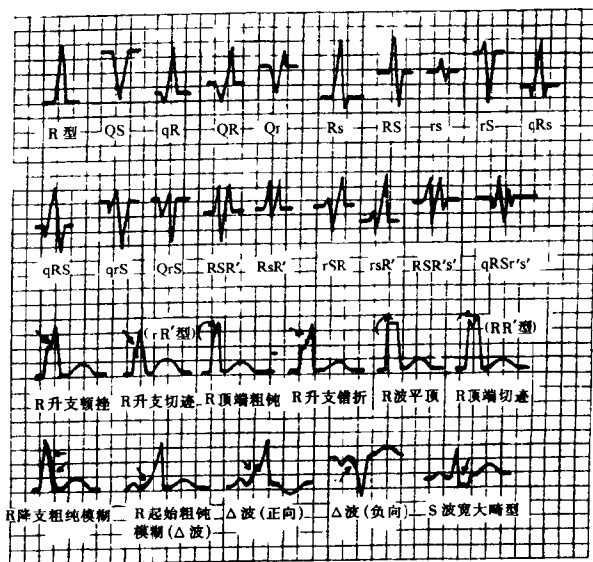 R型 QS qR QR Qr Rs RS rs rS qRs
qRS qrS QrS RSR′ RsR′ rSR rsR′ RSR′s′ qRSr′s′
(rR′型) (RR′型)
R升支顿挫 R升支切迹 R顶端粗钝 R升支错折 R波平顶 R顶端切迹
R降支粗纯模糊 R起始粗钝 △波(正向) △波(负向) S波宽大畸型
模糊(△波)